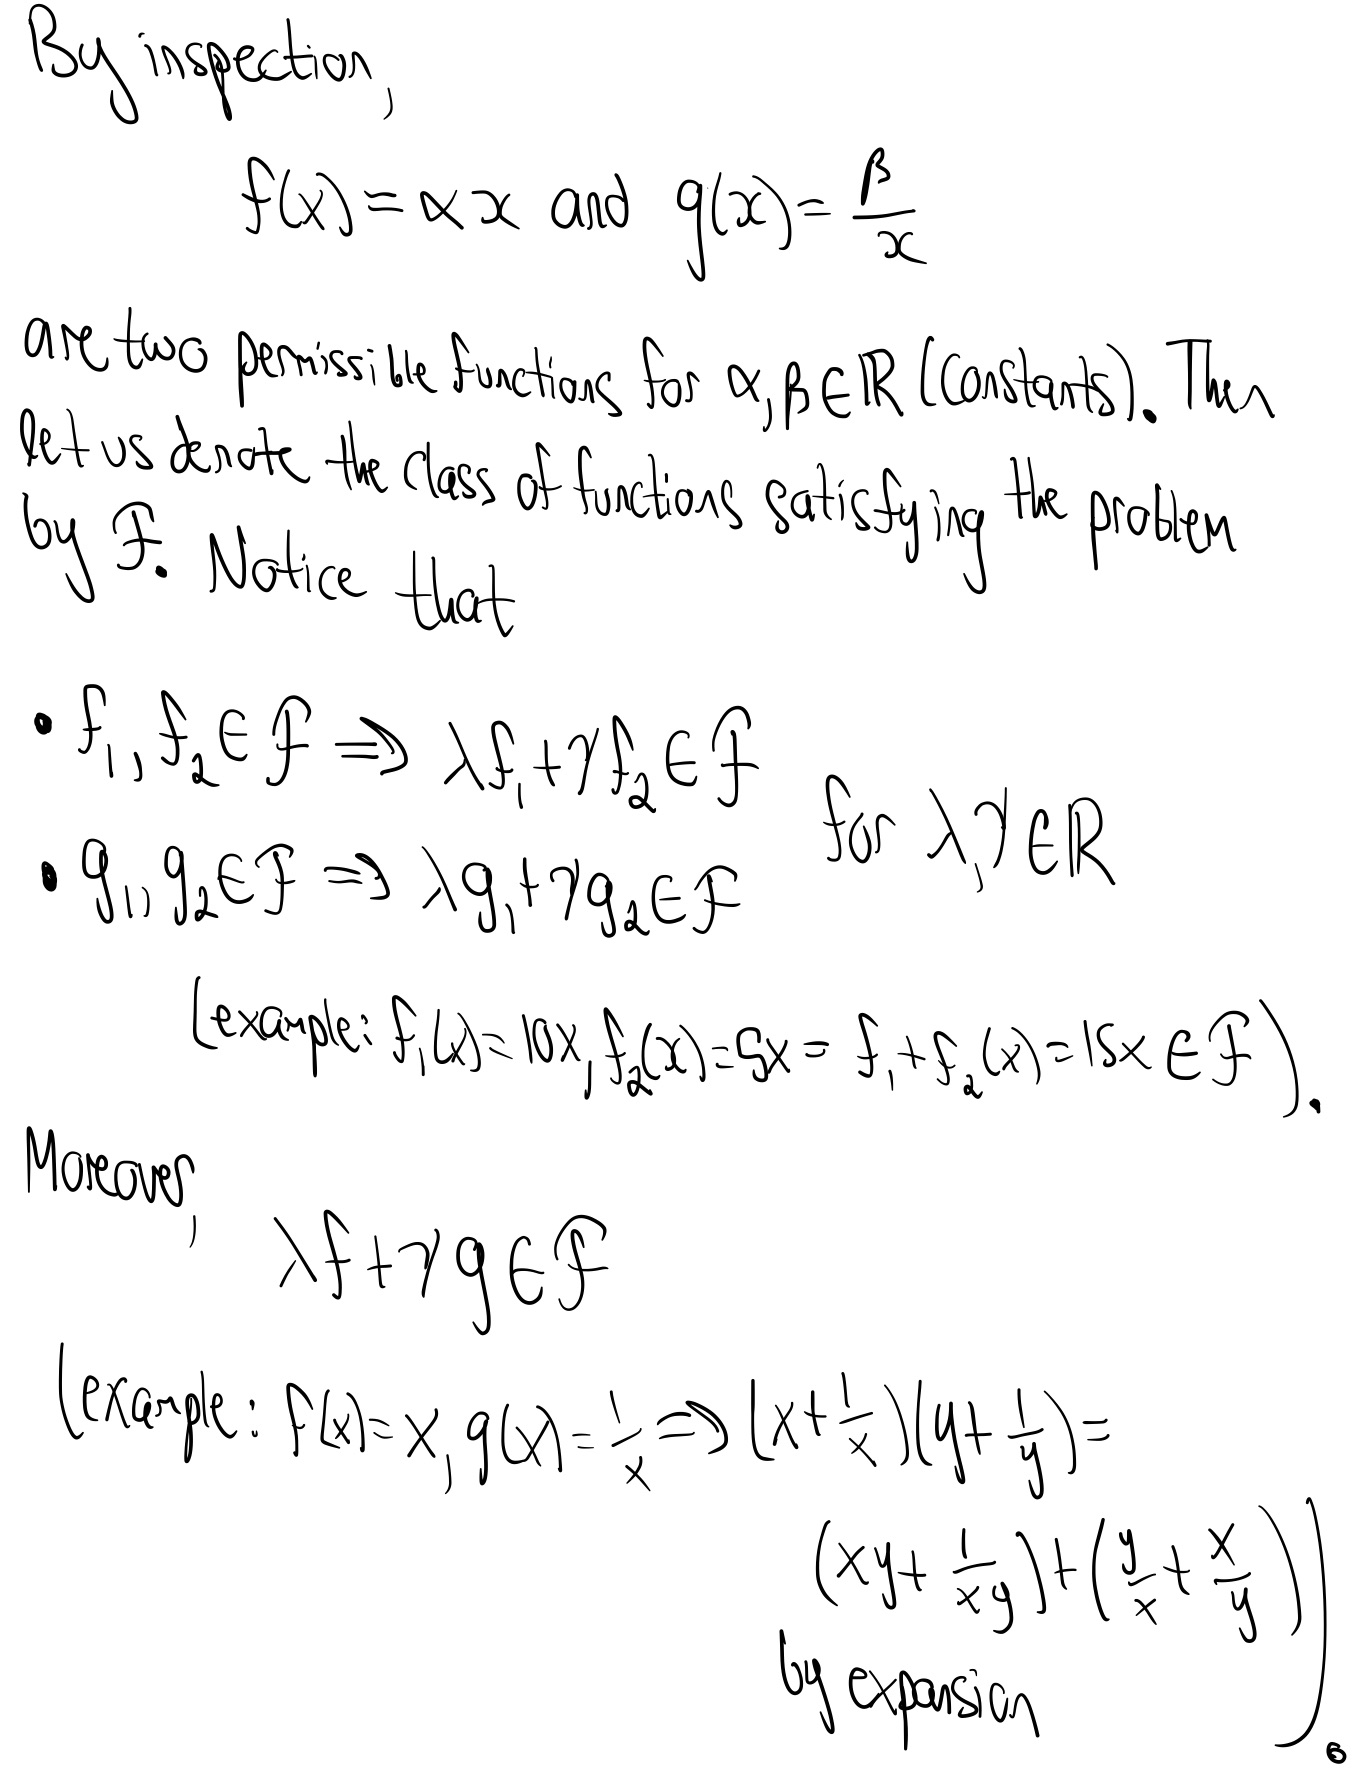 By inspection,
f(x) = αx and g(x) = β/x
are two permissible functions for α, β ∈ ℝ (constants). Then
let us denote the class of functions satisfying the problem
by ℱ. Notice that
• f₁, f₂ ∈ ℱ ⇒ λf₁ + γf₂ ∈ ℱ
for λ, γ ∈ ℝ
• g₁, g₂ ∈ ℱ ⇒ λg₁ + γg₂ ∈ ℱ
(example: f₁(x) = 10x, f₂(x) = 5x = f₁ + f₂(x) = 15x ∈ ℱ).
Moreover,
λf + γg ∈ ℱ
(example: f(x) = x, g(x) = 1/x ⇒ (x + 1/x)(y + 1/y) =
(xy + 1/xy) + (y/x + x/y)
by expansion).